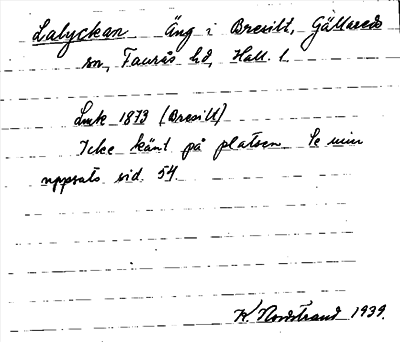 Lalyckan Äng i Bresilt, Gällareds
sn, Faurås hd, Hall. l.
Lmk 1873 (Bresilt)
Icke känt på platsen. Se min
uppsats sid. 54.
K. Nordstrand 1939.